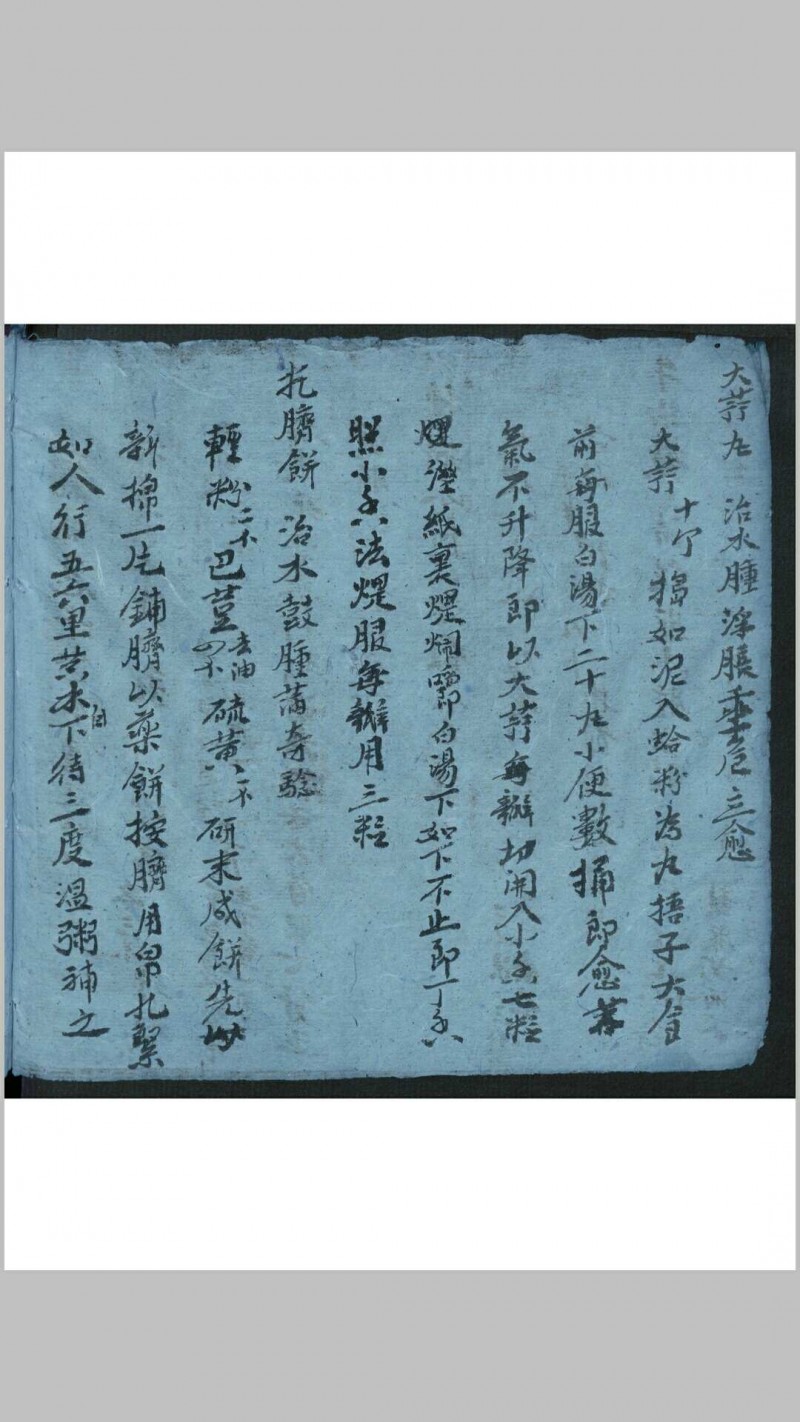 大蒜丸 治水腫浮脹垂危立愈
大蒜十个 搗如泥入蛤粉為丸捂子大食
前每服白湯下二十丸小便數桶即愈若
氣不升降即以大蒜每瓣切開入小香七粒
煨濕紙裹煨爛嚼白湯下如下不止即丁香
照小香法煨服每瓣用三粒
扎臍餅 治水鼓腫滿奇驗
輕粉二个巴荳去油四个硫黄一个研末成餅先以
新棉一片鋪臍以藥餅按臍用帛扎緊
如人行五六里黄水自下待三度溫粥補之